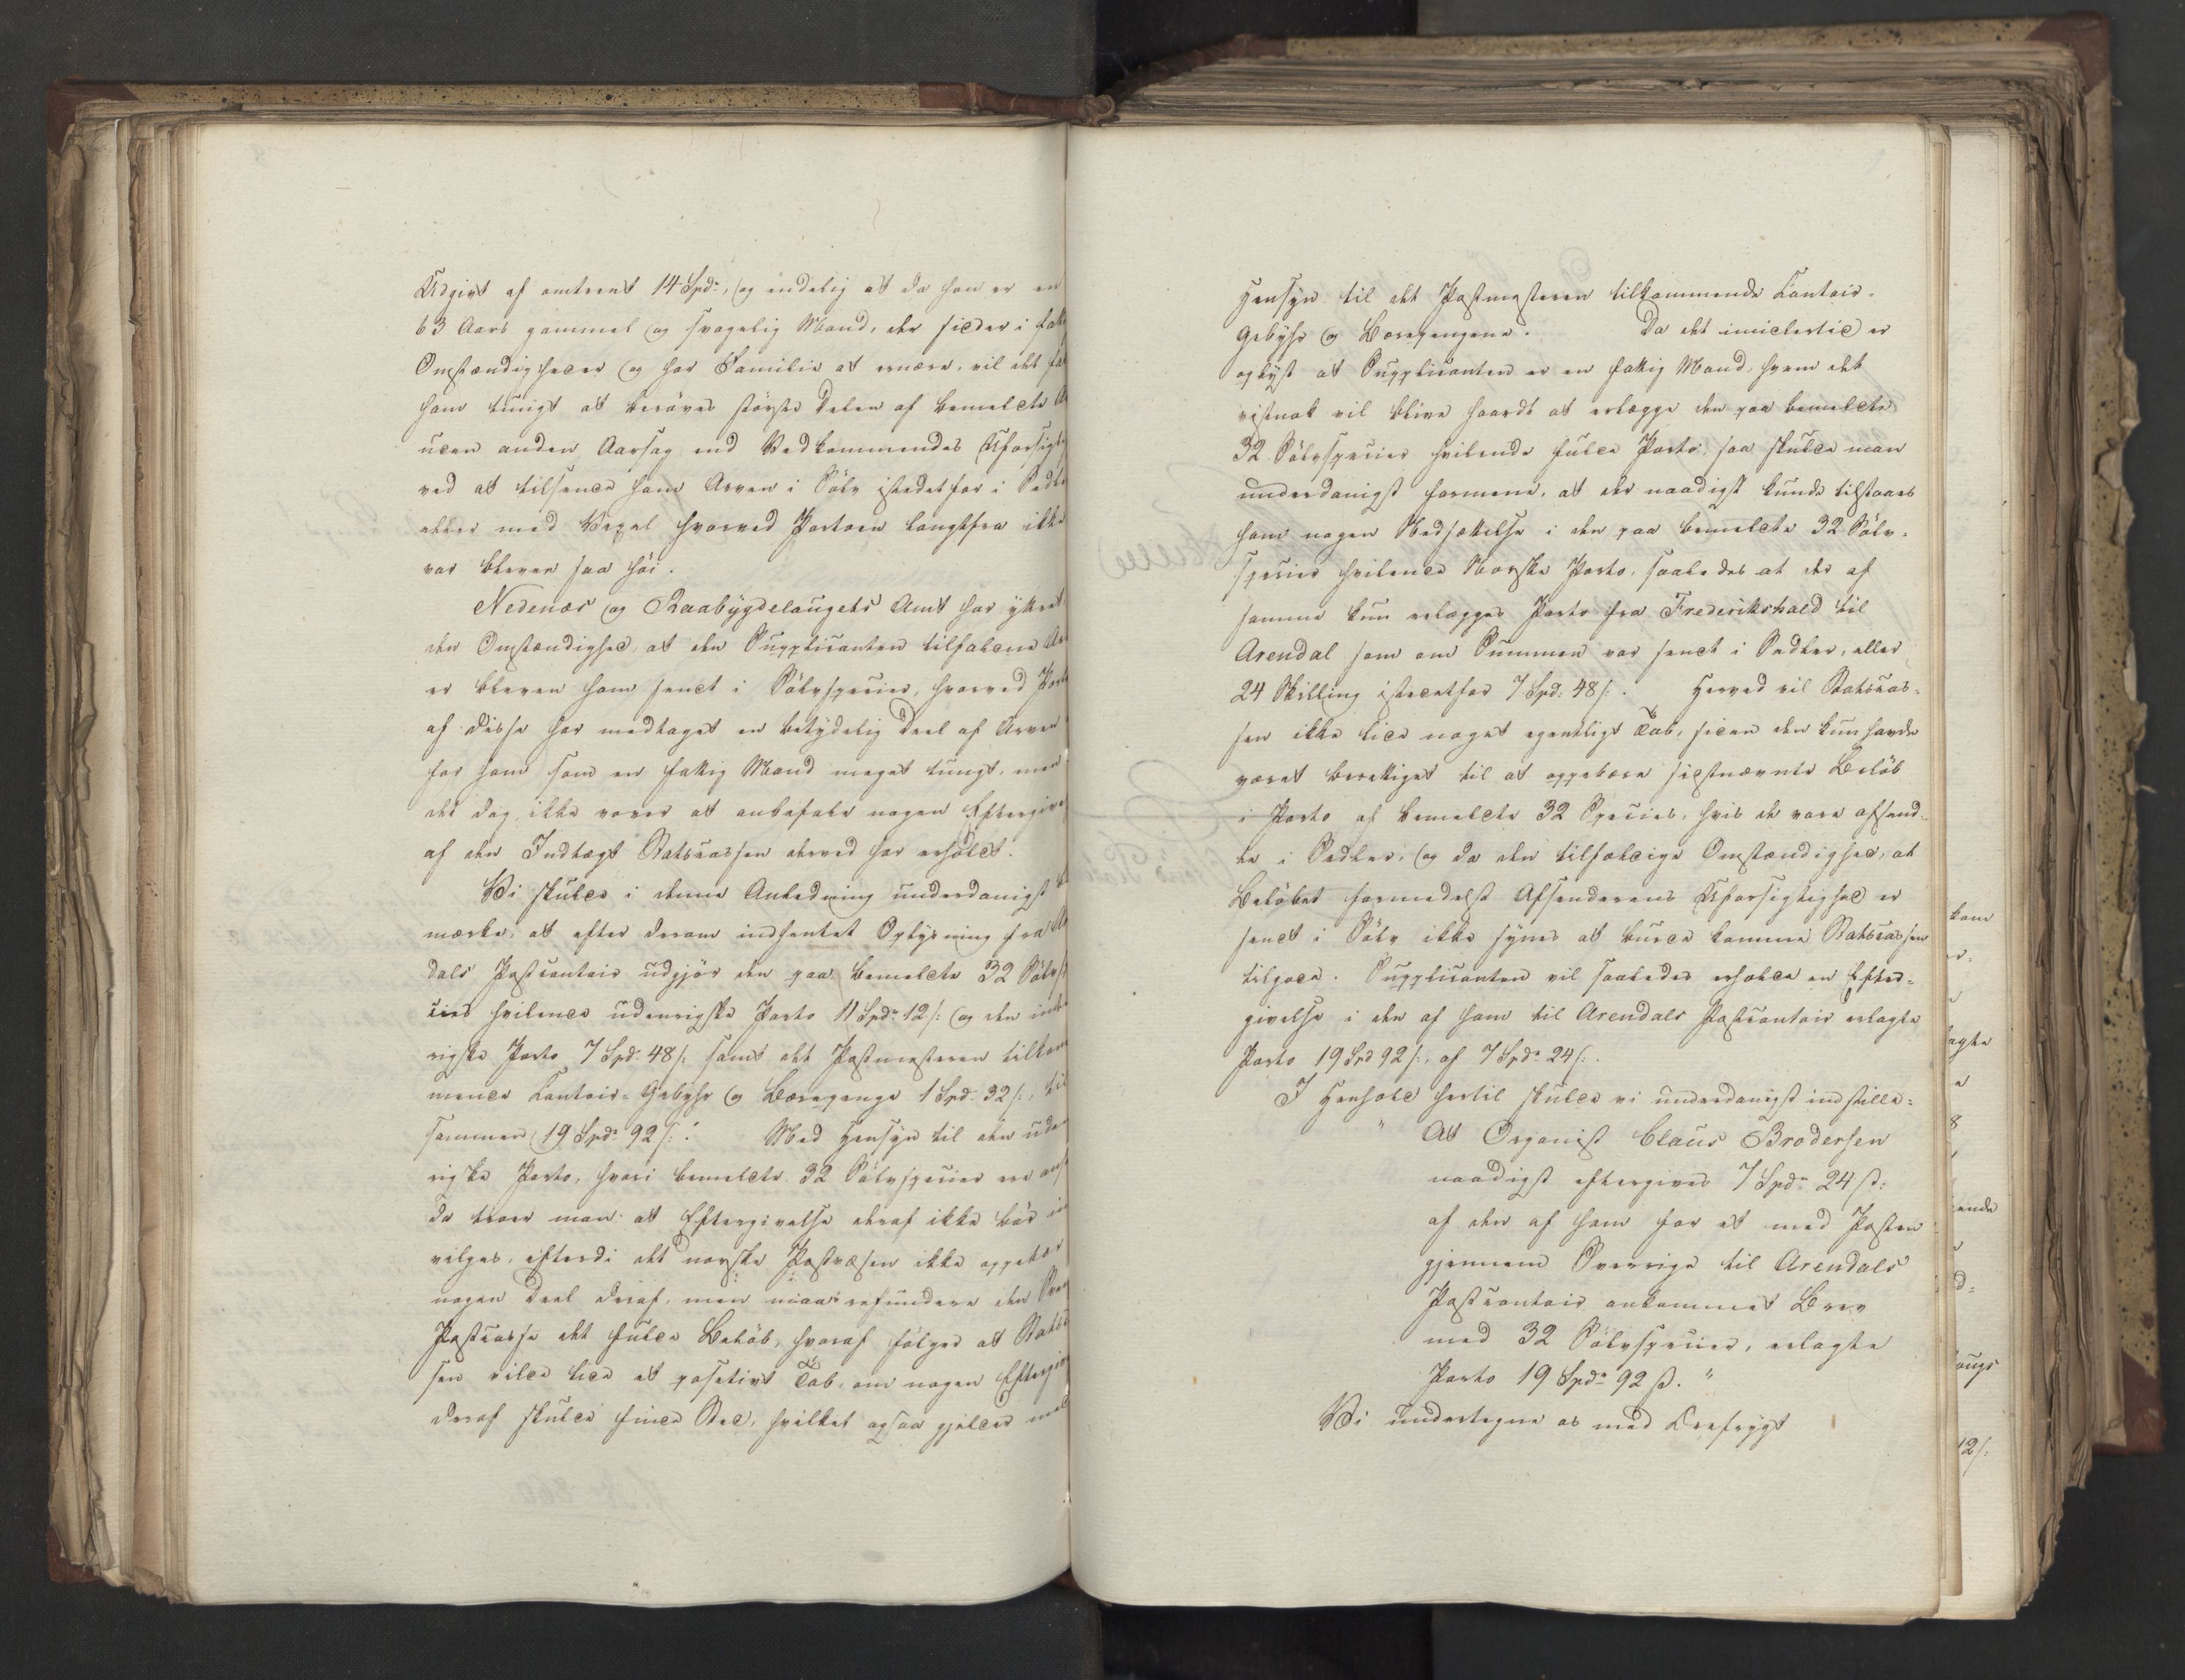 Udgivt af omtrent 14 Spd:, og endelig at da han er en
63 Aars gammel og svagelig Mand, der sidder i
Omstændigheder og har Familie at ernære, vil det
ham tungt at berøves störste Delen af bemeldte
uden anden Aarsag end Vedkommendes Uforsigt
ved at tilsende ham Arven i Sölv istedetfor i Sedle
eller med Vexel hvorved Portoen langtfra ikke
var bleven saa höi.
Nedenæs og Raabygdelaugets Amt har yttret
den Omstændighed, at den Supplicanten tilfaldne
er bleven ham sendt i Sölvspecier, hvorved Porto
af disse har medtaget en betydelig Deel af Arven
for ham som en fattig Mand meget tungt, men
det dog ikke vover at anbefale nogen Eftergive
af den Indtægt Statscassen derved har erholdt.
Vi skulde i denne Anledning underdanigst
mærke, at efter derom indhentet Oplysning fra
dals Postcontoir udgjör den paa bemeldte 32 Sölvs
cies hvilende udenrigske Porto 11 Spd: 12 s: og den inden
rigske Porto 7 Spd: 48 s: samt det Postmesteren tilkom
mende Contoir-Gebyhr og Bærepenge 1 Spd: 32 s:, til
sammen 19 Spd: 92 s:. Med Hensyn til den uden
rigske Porto, hvori bemeldte 32 Sölvspecier ere
da troer man at Eftergivelse deraf ikke bör
vilges, efterdi det norske Postvæsen ikke oppebær
nogen Deel deraf, men maa refundere den
Postcasse det fulde Belöb, hvoraf fölger at Stats
sen vilde lide et positivt Tab, om nogen Eftergiv
deraf skulde finde Sted, hvilket ogsaa gjelder med
Hensyn til det Postmesteren tilkommende Contoir-
Gebyhr og Bærepengene. Da det imidlertid er
oplyst at Supplicanten er en fattig Mand, hvem det
vistnok vil blive haardt at erlægge den paa bemeldte
32 Sölvspecier hvilende fulde Porto, saa skulde man
underdanigst formene, at der naadigst kunde tilstaaes
ham nogen Nedsættelse i den paa bemeldte 32 Sölv-
specier hvilende Norske Porto, saaledes at der af
samme kun erlægges Porto fra Frederikshald til
Arendal som om Summen var sendt i Sedler, eller
24 Skilling istedetfor 7 Spd: 48 s:. Herved vil Statscas-
sen ikke lide noget egentligt Tab, siden den kun havde
været berettiget til at oppebære sidstnævnte Belöb
i Porto af bemeldte 32 Species, hvis de vare afsend-
te i Sedler, og da den tilfældige Omstændighed, at
Belöbet formedelst Afsenderens Uforsigtighed er
sendt i Sölv ikke synes at burde komme Statscassen
tilgode. Supplicanten vil saaledes erholde en Efter-
givelse i den af ham til Arendals Postcontoir erlagte
Porto 19 Spd 92 s:, af 7 Spd: 24 s:.
I Henhold hertil skulde vi underdanigst indstille:
" At Organist Claus Brodersen
naadigst eftergives 7 Spd: 24 ß:
af den af ham for et med Posten
gjennem Sverrige til Arendals
Postcontoir ankommet Brev
med 32 Sölvspecier, erlagte
Porto 19 Spd: 92 ß. "
Vi undertegne os med Ærefrygt